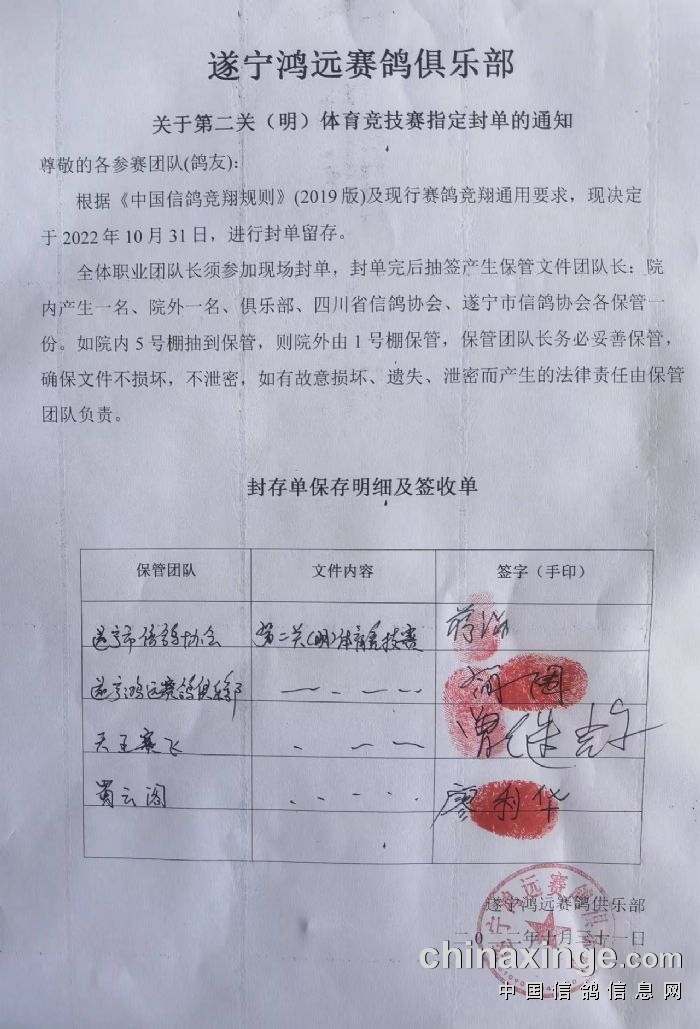 遂宁鸿远赛鸽俱乐部
关于第二关（明）体育竞技赛指定封单的通知
尊敬的各参赛团队(鸽友):
根据《中国信鸽竞翔规则》(2019版)及现行赛鸽竞翔通用要求，现决定
于2022年10月31日，进行封单留存。
全体职业团队长须参加现场封单，封单完后抽签产生保管文件团队长：院
内产生一名、院外一名、俱乐部、四川省信鸽协会、遂宁市信鸽协会各保管一
份。如院内5号棚抽到保管，则院外由1号棚保管，保管团队长务必妥善保管，
确保文件不损坏，不泄密，如有故意损坏、遗失、泄密而产生的法律责任由保管
团队负责。
封存单保存明细及签收单
保管团队 文件内容 签字（手印）
遂宁市信鸽协会 第二关(明)体育竞技赛
遂宁鸿远赛鸽俱乐部
天王赛飞
蜀云阁 廖利华
遂宁鸿远赛鸽俱乐部
二0二二年十月三十一日
chinaxinge.com
中国信鸽信息网